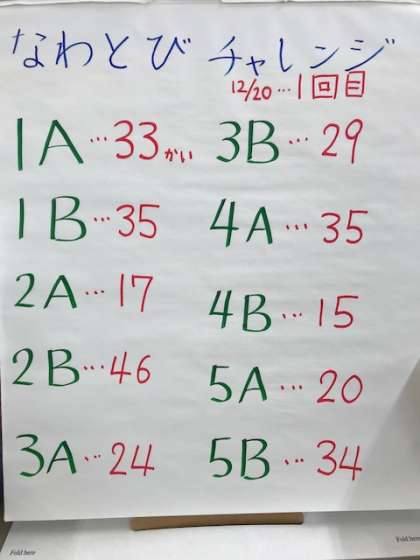 なわとび チャレンジ
12/20…1回目
1A…33かい
1B…35
2A…17
2B…46
3A…24
3B…29
4A…35
4B…15
5A…20
5B…34
Fold here
Fold here